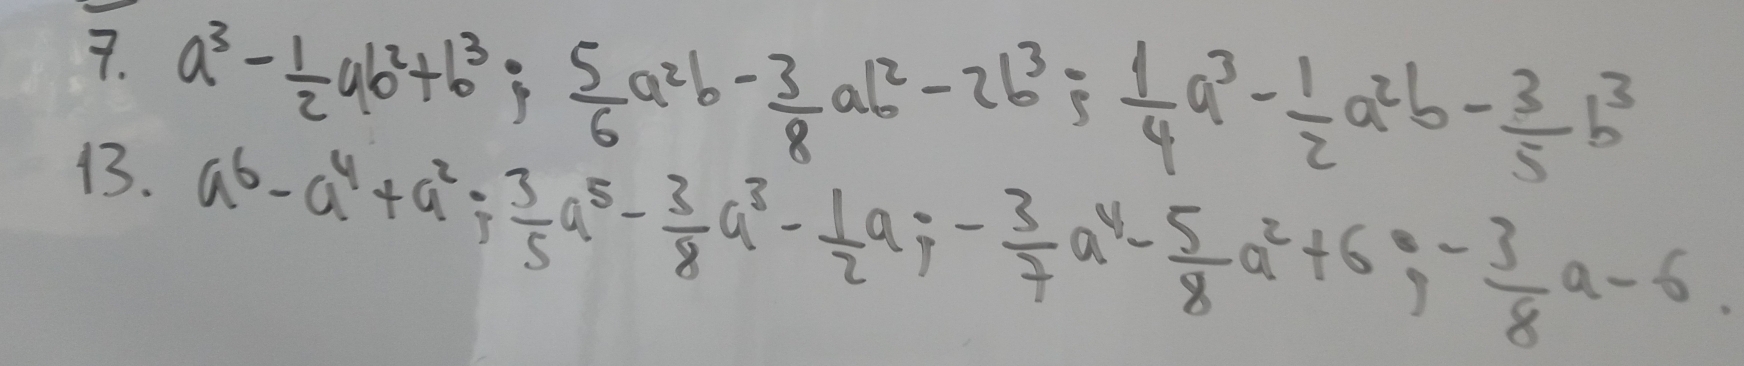 7. a³ - 1/2 ab² + b³ ; 5/6 a²b - 3/8 ab² - 2b³ ; 1/4 a³ - 1/2 a²b - 3/5 b³
13. a⁶ - a⁴ + a² ; 3/5 a⁵ - 3/8 a³ - 1/2 a ; - 3/7 a⁴ - 5/8 a² + 6 ; - 3/8 a - 6 .